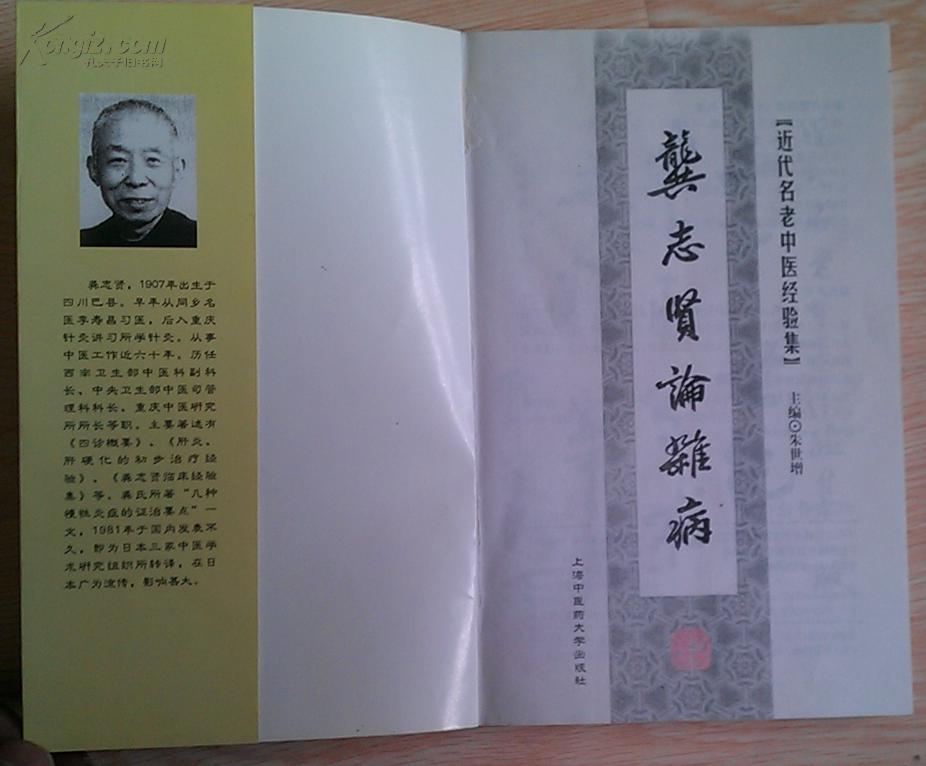 Kongfz.com
孔夫子旧书网
龚志贤，1907年出生于
四川巴县。早年从同乡名
医李寿昌习医，后入重庆
针灸讲习所学针灸。从事
中医工作近六十年。历任
西南卫生部中医科副科
长、中央卫生部中医司管
理科科长、重庆中医研究
所所长等职。主要著述有
《四诊概要》、《肝炎、
肝硬化的初步治疗经
验》、《龚志贤临床经验
集》等。龚氏所著“几种
慢性炎症的证治要点”一
文，1981年于国内发表不
久，即为日本三家中医学
术研究组织所转译，在日
本广为流传，影响甚大。
【近代名老中医经验集】
主编⊙朱世增
龔志贤論雜病
上海中医药大学出版社